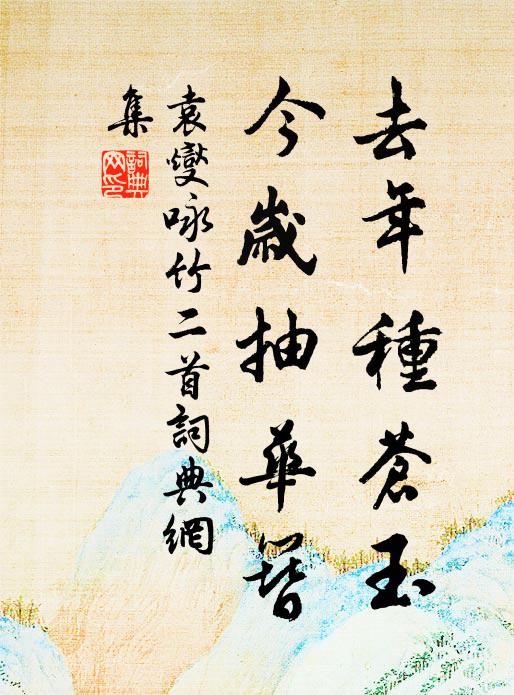 去年種蒼玉
今歲抽華簪
袁燮咏竹二首詞典網
集
詞典
网印